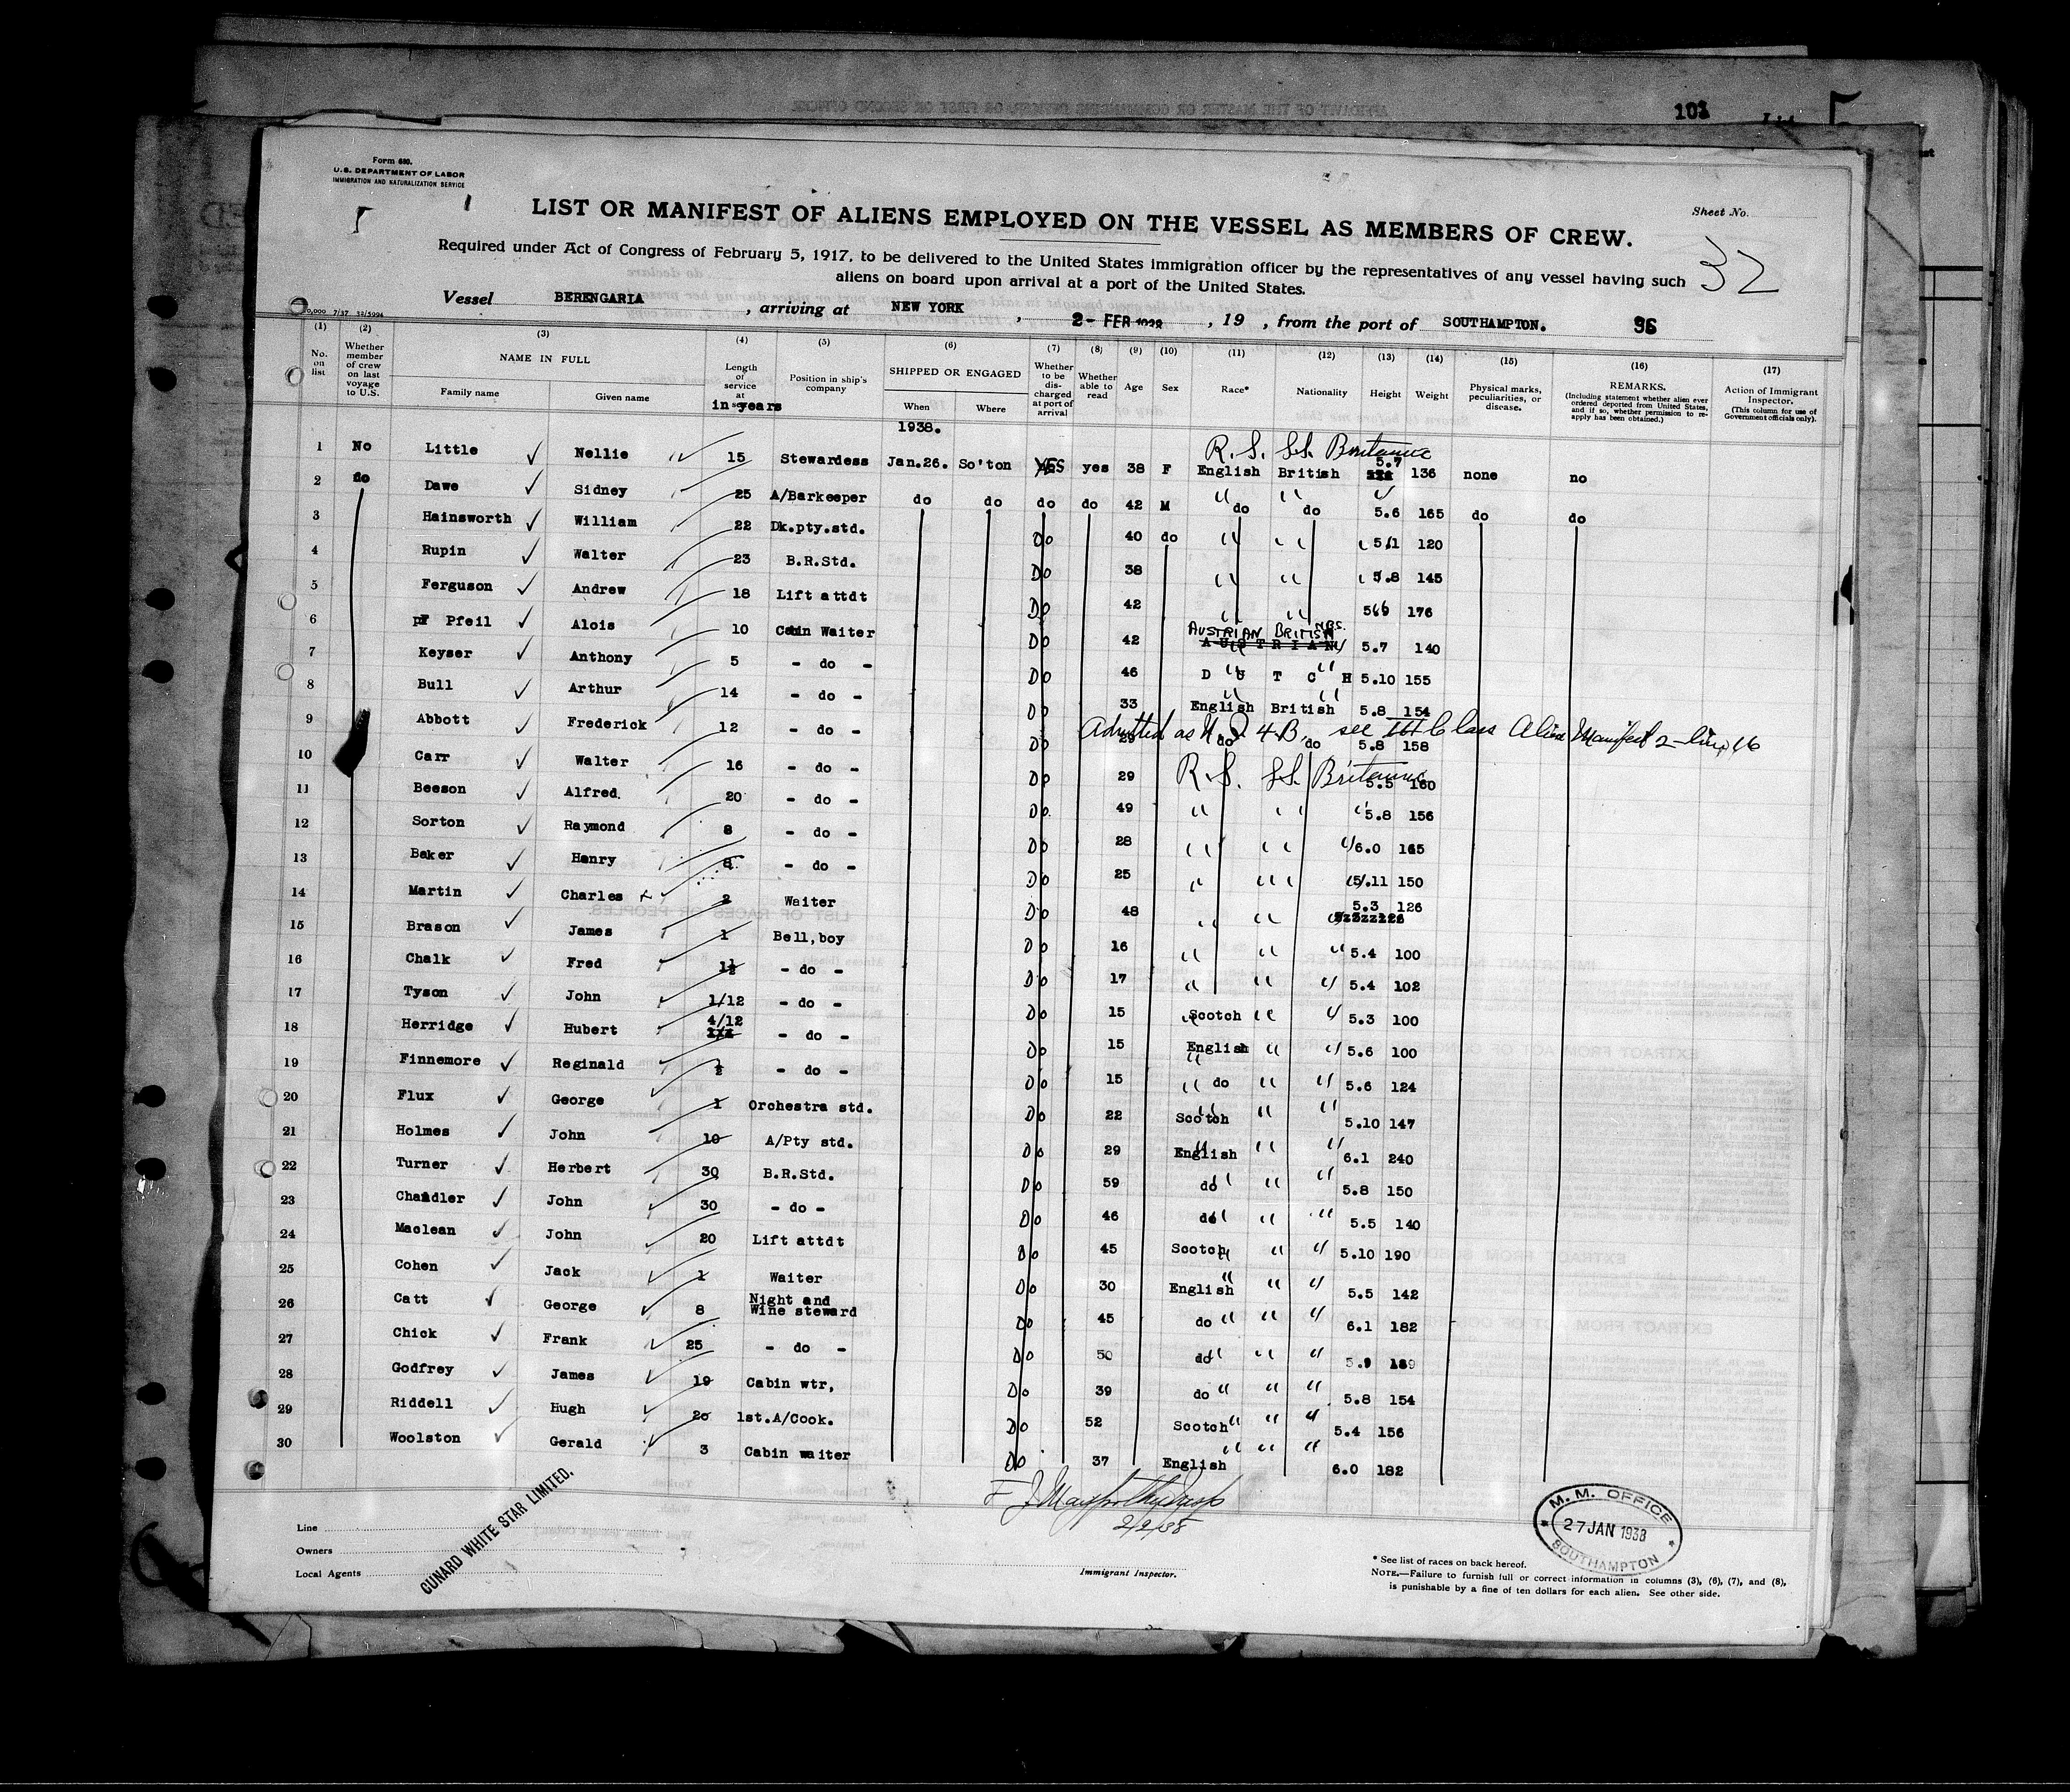 103
Form 680.
U. S. DEPARTMENT OF LABOR
IMMIGRATION AND NATURALIZATION SERVICE
Sheet No.
LIST OR MANIFEST OF ALIENS EMPLOYED ON THE VESSEL AS MEMBERS OF CREW.
32
Required under Act of Congress of February 5, 1917, to be delivered to the United States immigration officer by the representatives of any vessel having such
aliens on board upon arrival at a port of the United States.
Vessel BERENGARIA , arriving at NEW YORK , 2- FEB 1938 , 19 , from the port of SOUTHAMPTON. 96
(1) (2) (3) (4) (5) (6) (7) (8) (9) (10) (11) (12) (13) (14) (15) (16) (17)
No. on list | Whether member of crew on last voyage to U.S. | NAME IN FULL Family name Given name | Length of service at in years | Position in ship's company | SHIPPED OR ENGAGED When Where | Whether to be discharged at port of arrival | Whether able to read | Age | Sex | Race* | Nationality | Height | Weight | Physical marks, peculiarities, or disease. | REMARKS. (Including statement whether alien ever ordered deported from United States, and if so, whether permission to re-apply has been obtained.) | Action of Immigrant Inspector. (This column for use of Government officials only).
1938.
R. S. SS. Britannic
1 No Little Nellie 15 Stewardess Jan.26. So'ton YES yes 38 F English British 5.7 136 none no
2 do Dawe Sidney 25 A/Barkeeper do do do do 42 M " do " do " 5.6 165 do do
3 Hainsworth William 22 Dk.pty.std. Do 40 do " " 5.1 120
4 Rupin Walter 23 B.R.Std. Do 38 " " 5.8 145
5 Ferguson Andrew 18 Lift attdt Do 42 " " 5.6 176
6 Pfeil Alois 10 Cabin Waiter Do 42 AUSTRIAN BRITISH AUSTRIAN 5.7 140
7 Keyser Anthony 5 - do - Do 46 DUTCH 5.10 155
8 Bull Arthur 14 - do - Do 33 English British 5.8 154
Admitted as N. Q 4 B. see III Class Alien Manifest 2 - line 16
9 Abbott Frederick 12 - do - Do 29 do do 5.8 158
10 Carr Walter 16 - do - Do 29 R. S. SS. Britannic 5.5 160
11 Beeson Alfred. 20 - do - Do 49 " " " 5.8 156
12 Sorton Raymond 8 - do - Do 28 " " " 6.0 165
13 Baker Henry 8 - do - Do 25 " " " 5.11 150
14 Martin Charles 2 Waiter Do 48 " " " 5.3 126
15 Brason James 1 Bell,boy Do 16 " " " 5.4 100
16 Chalk Fred 1½ - do - Do 17 " " " 5.4 102
17 Tyson John 1/12 - do - Do 15 Scotch " " 5.3 100
18 Herridge Hubert 4/12 - do - Do 15 English " " 5.6 100
19 Finnemore Reginald ½ - do - Do 15 " do " " 5.6 124
20 Flux George 1 Orchestra std. Do 22 Scotch " " 5.10 147
21 Holmes John 10 A/Pty std. Do 29 English " " 6.1 240
22 Turner Herbert 30 B.R.Std. Do 59 do " " " 5.8 150
23 Chandler John 30 - do - Do 46 do " " " 5.5 140
24 Maclean John 20 Lift attdt Do 45 Scotch " " " 5.10 190
25 Cohen Jack 1 Waiter Do 30 English " " " 5.5 142
26 Catt George 8 Night and Wine steward Do 45 do " " " 6.1 182
27 Chick Frank 25 - do - Do 50 do " " " 5.9 189
28 Godfrey James 19 Cabin wtr, Do 39 do " " " 5.8 154
29 Riddell Hugh 20 1st.A/Cook. Do 52 Scotch " " " 5.4 156
30 Woolston Gerald 3 Cabin waiter Do 37 English " " " 6.0 182
2/2/38
Line
Owners
Local Agents
CUNARD WHITE STAR LIMITED.
Immigrant Inspector.
M. M. OFFICE
27 JAN 1938
SOUTHAMPTON
* See list of races on back hereof.
NOTE.—Failure to furnish full or correct information in columns (3), (6), (7), and (8),
is punishable by a fine of ten dollars for each alien. See other side.